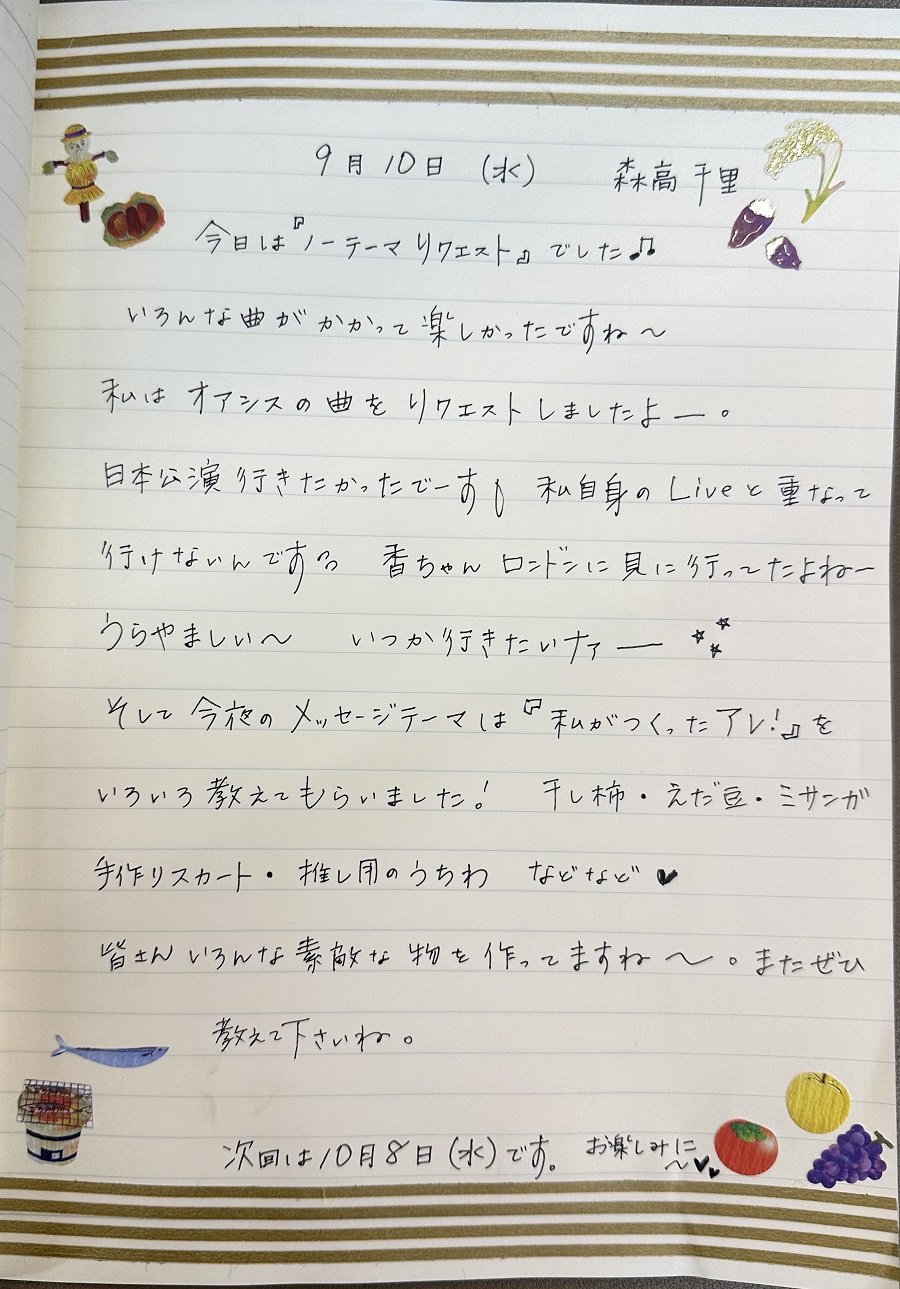 9月10日 (水) 森高千里
今日は『ノーテーマリクエスト』でした♫
いろんな曲がかかって楽しかったですね〜
私はオアシスの曲をリクエストしましたよー。
日本公演行きたかったでーす 私自身のLiveと重なって
行けないんです 香ちゃんロンドンに見に行ってたよねー
うらやましい〜 いつか行きたいナァー ☆☆☆
そして今夜のメッセージテーマは『私がつくったアレ!』を
いろいろ教えてもらいました! 干し柿・えだ豆・ミサンガ
手作りスカート・推し用のうちわ などなど♥
皆さんいろんな素敵な物を作ってますね〜。またぜひ
教えて下さいね。
次回は10月8日(水)です。 お楽しみに
〜♥♥